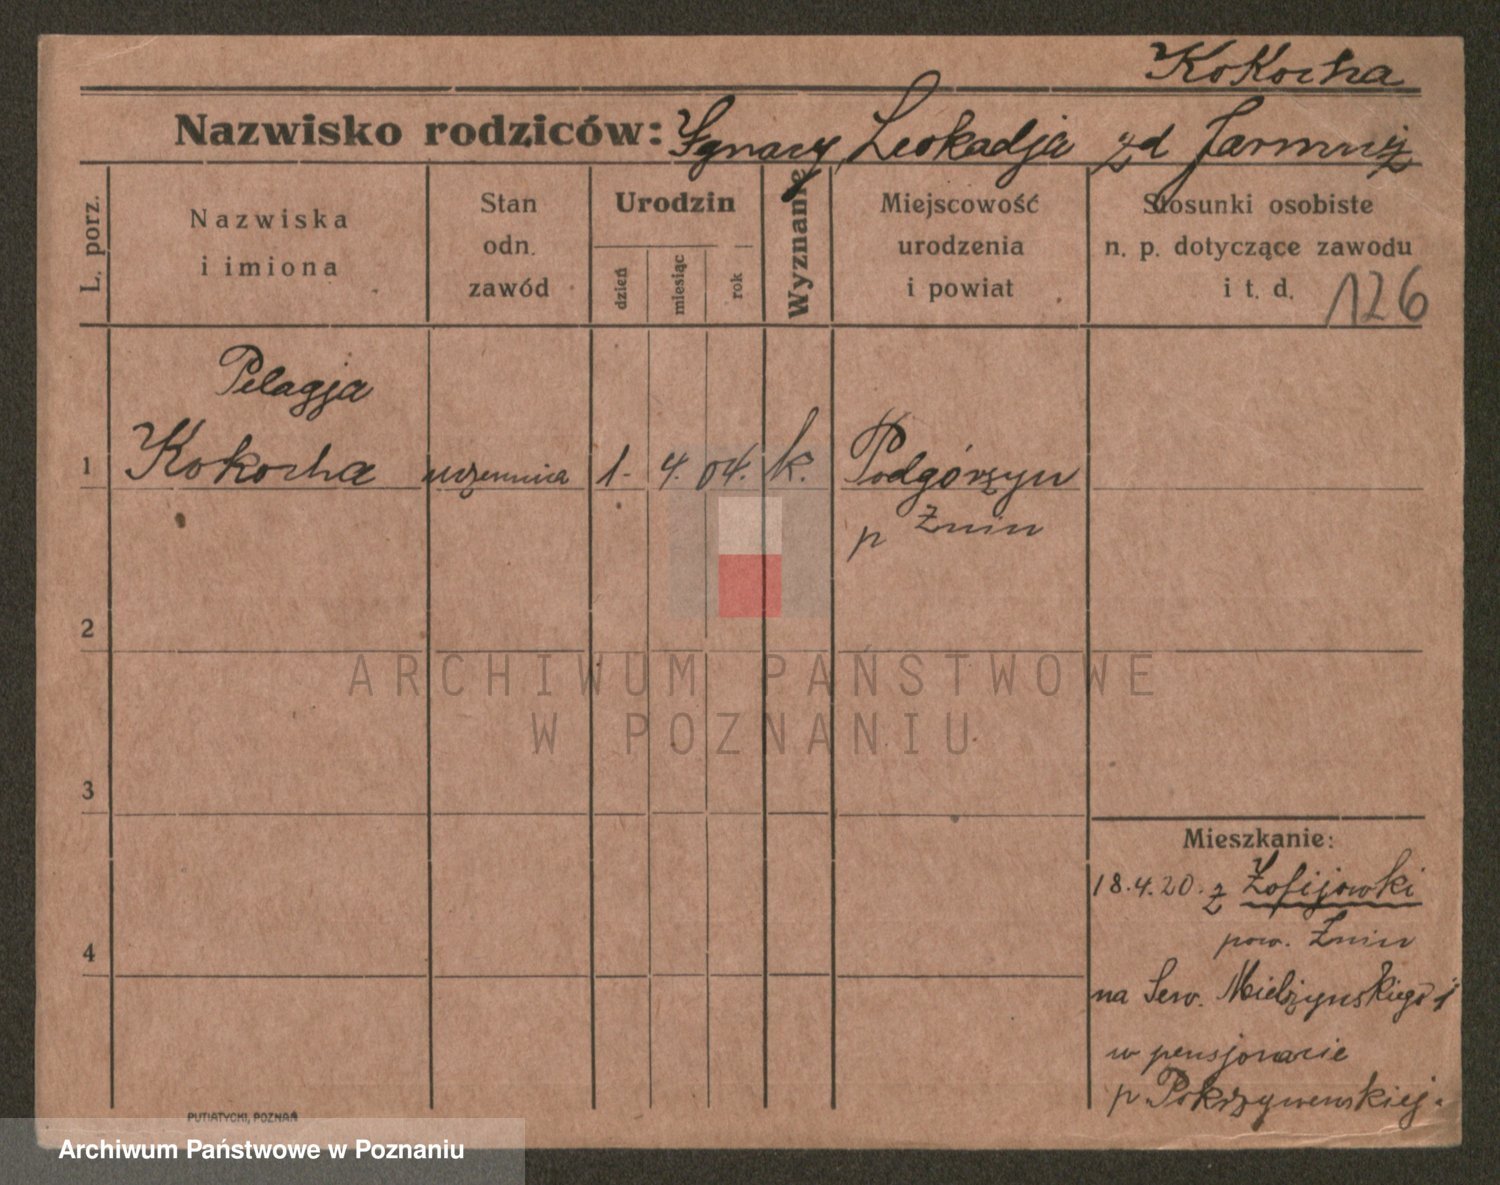 Kokocha
Nazwisko rodziców: Ignacy, Leokadja zd Jarmuż
L. porz.
Nazwiska
i imiona
Stan
odn.
zawód
Urodzin
dzień
miesiąc
rok
Wyznanie
Miejscowość
urodzenia
i powiat
Stosunki osobiste
n. p. dotyczące zawodu
i t. d.
126
Pelagja
1 Kokocha uczennica 1. 4. 04. k. Podgórzyn
p Żnin
2
3
4
Mieszkanie:
18.4.20. z Zofijówki
pow. Żnin
na Sew. Mielżyńskiego 1
w pensjonacie
p Pokrzywenskiej.
PUTIATYCKI, POZNAŃ
ARCHIWUM PAŃSTWOWE
W POZNANIU
Archiwum Państwowe w Poznaniu